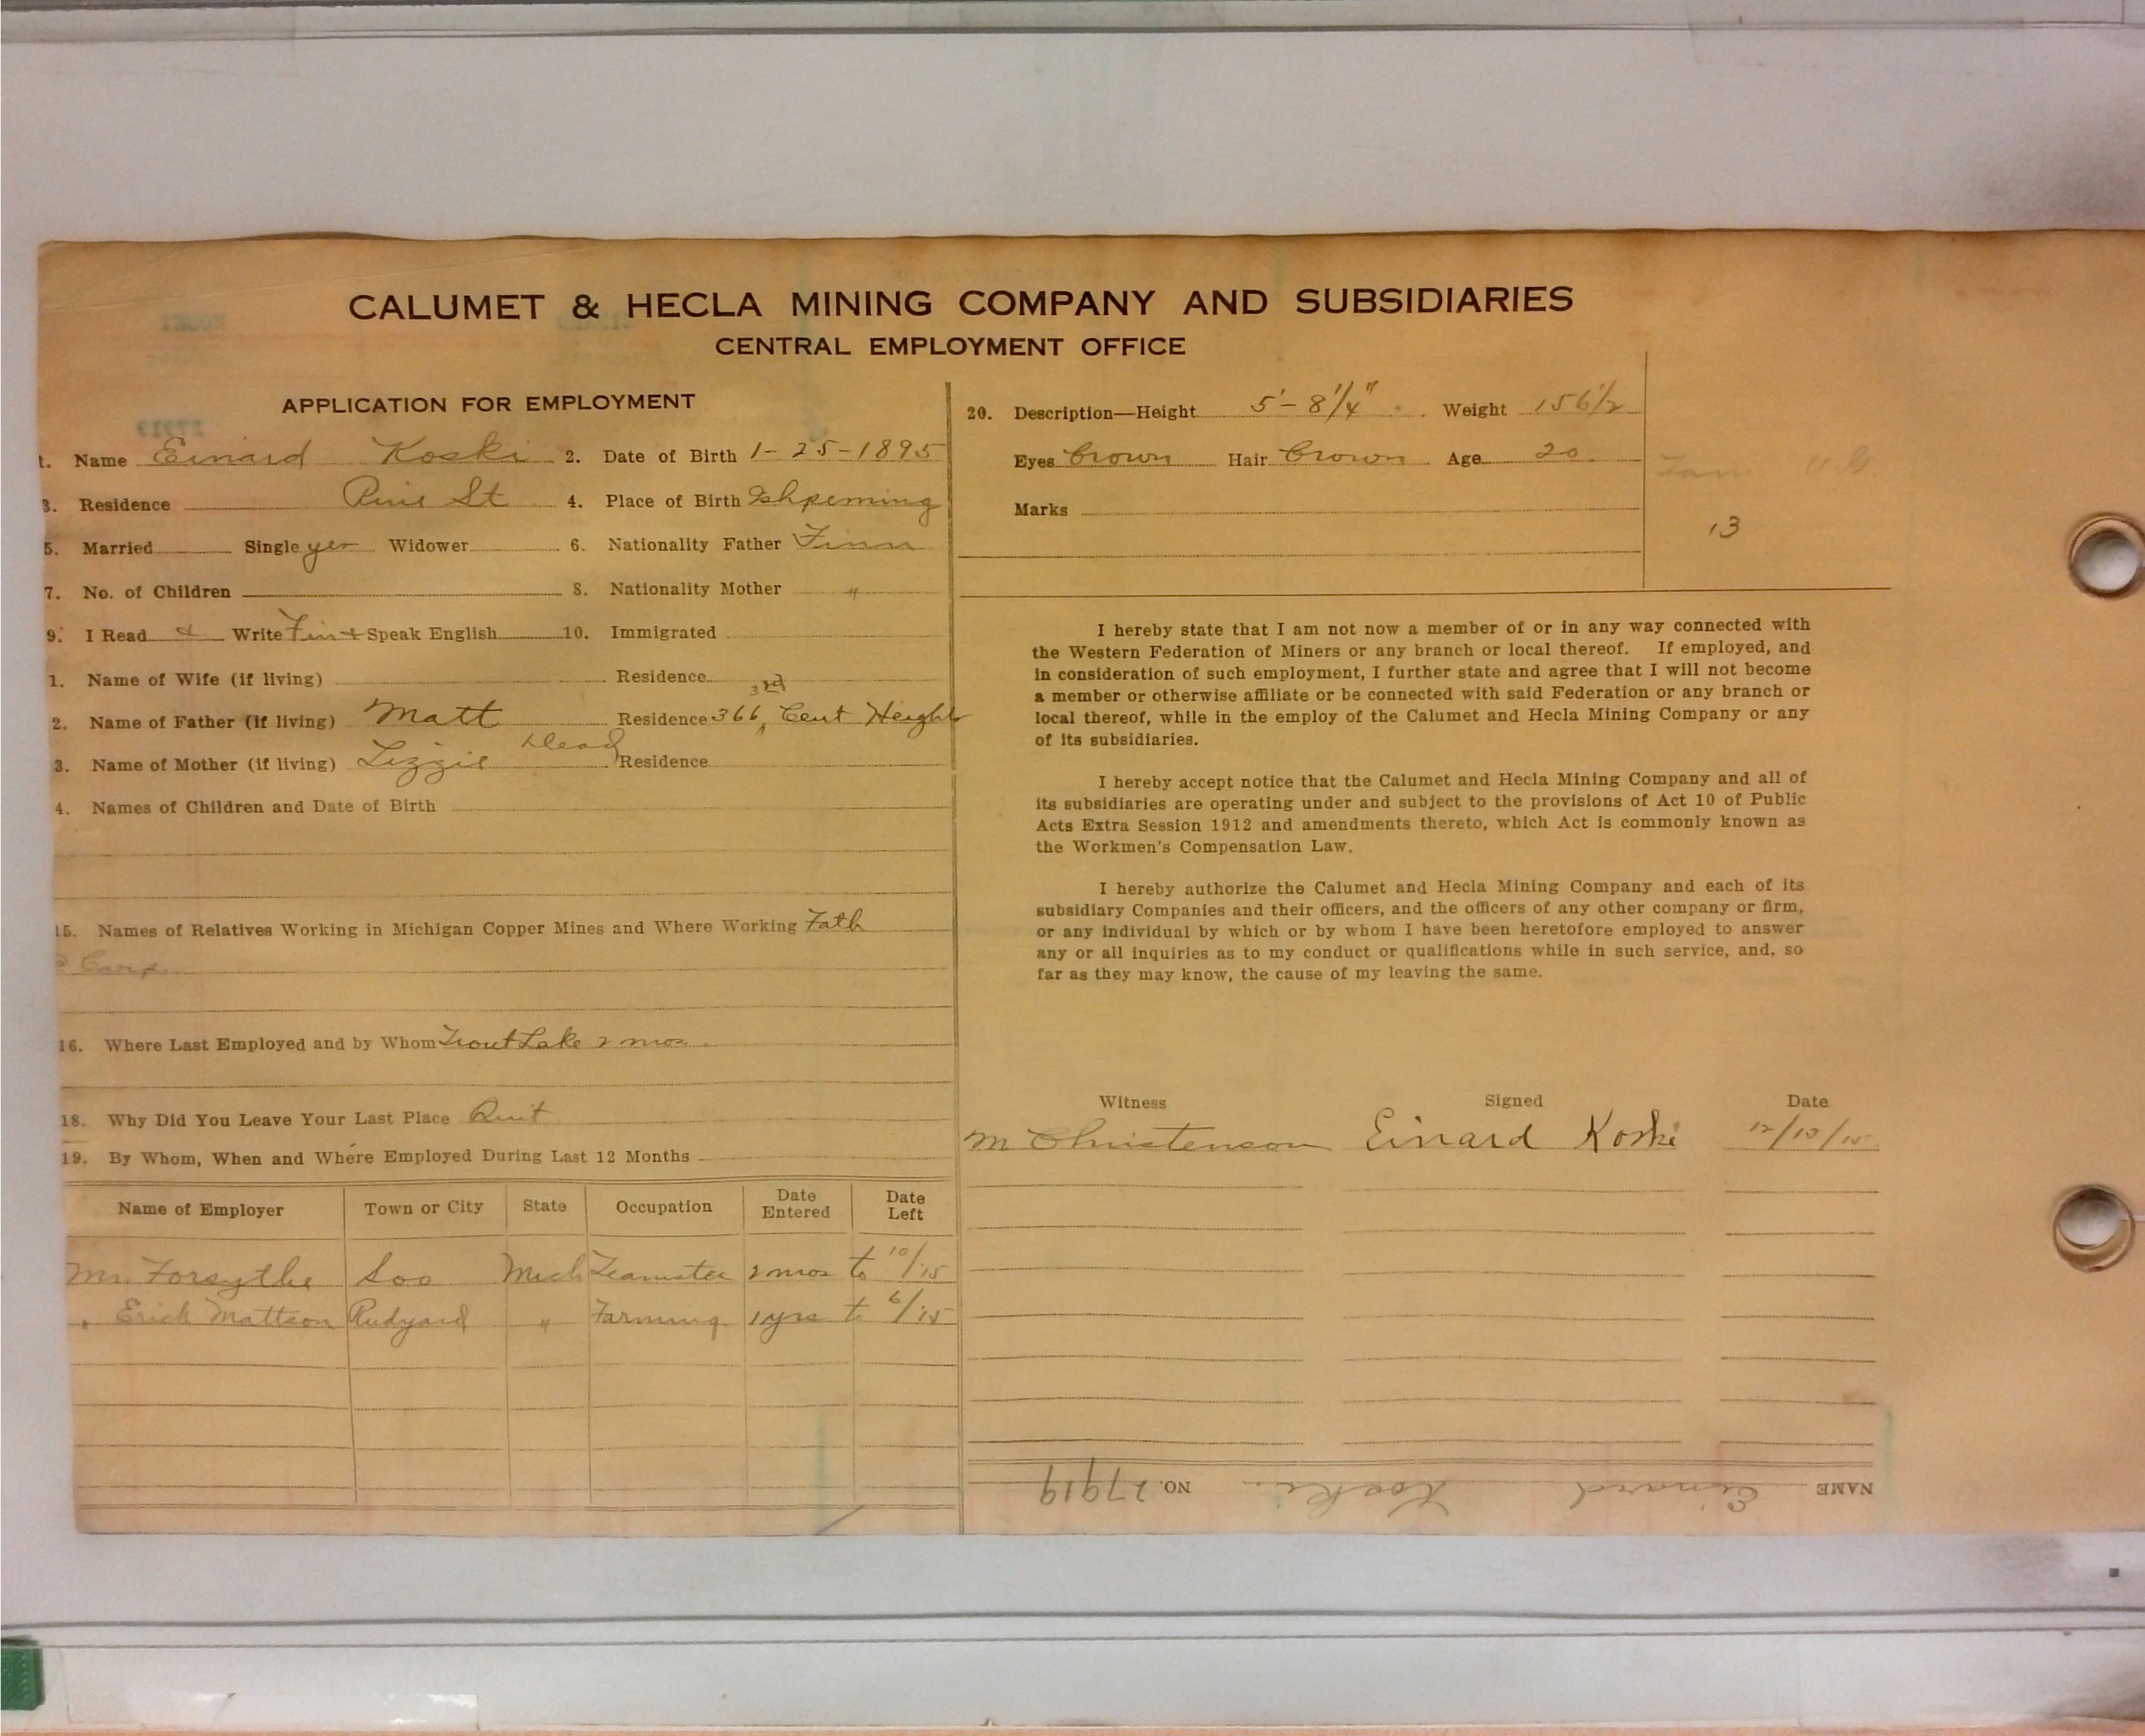 CALUMET & HECLA MINING COMPANY AND SUBSIDIARIES
CENTRAL EMPLOYMENT OFFICE
APPLICATION FOR EMPLOYMENT
1. Name Einard Koski 2. Date of Birth 1-25-1895
3. Residence Pine St 4. Place of Birth Ishpeming
5. Married Single yes Widower 6. Nationality Father Finn
7. No. of Children 8. Nationality Mother "
9. I Read & Write Finn & Speak English 10. Immigrated
1. Name of Wife (if living) Residence
2. Name of Father (if living) Matt Residence 366, 3rd Cent Heights
3. Name of Mother (if living) Lizzie Dead Residence
4. Names of Children and Date of Birth
15. Names of Relatives Working in Michigan Copper Mines and Where Working Fath
16. Where Last Employed and by Whom Trout Lake 2 mos.
18. Why Did You Leave Your Last Place Quit
19. By Whom, When and Where Employed During Last 12 Months
Name of Employer Town or City State Occupation Date Entered Date Left
Mr. Forsythe Soo Mich Teamster 2 mos to 10/15
" Erick Mattson Rudyard " Farming. 1 yrs to 6/15
20. Description—Height 5'-8 1/4" Weight 156 1/2
Eyes Brown Hair Brown Age 20
Marks
13
I hereby state that I am not now a member of or in any way connected with
the Western Federation of Miners or any branch or local thereof. If employed, and
in consideration of such employment, I further state and agree that I will not become
a member or otherwise affiliate or be connected with said Federation or any branch or
local thereof, while in the employ of the Calumet and Hecla Mining Company or any
of its subsidiaries.
I hereby accept notice that the Calumet and Hecla Mining Company and all of
its subsidiaries are operating under and subject to the provisions of Act 10 of Public
Acts Extra Session 1912 and amendments thereto, which Act is commonly known as
the Workmen's Compensation Law.
I hereby authorize the Calumet and Hecla Mining Company and each of its
subsidiary Companies and their officers, and the officers of any other company or firm,
or any individual by which or by whom I have been heretofore employed to answer
any or all inquiries as to my conduct or qualifications while in such service, and, so
far as they may know, the cause of my leaving the same.
Witness Signed Date
M Christenson Einard Koski 12/13/15
NAME Einard Koski NO. 27919